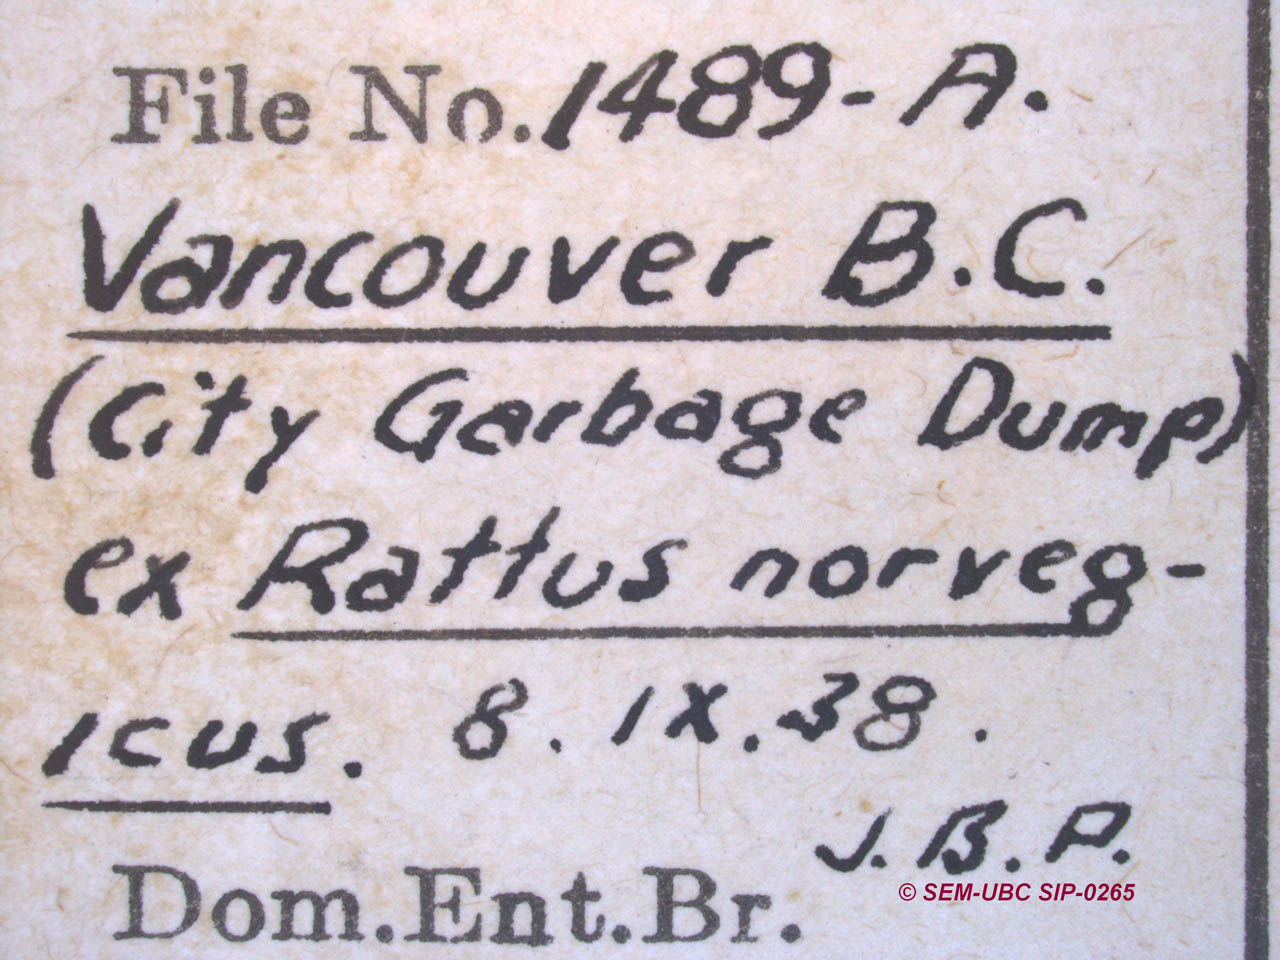 File No. 1489-A.
Vancouver B.C.
(City Garbage Dump)
ex Rattus norveg-
icus. 8. IX. 38.
J. B. P.
© SEM-UBC SIP-0265
Dom.Ent.Br.